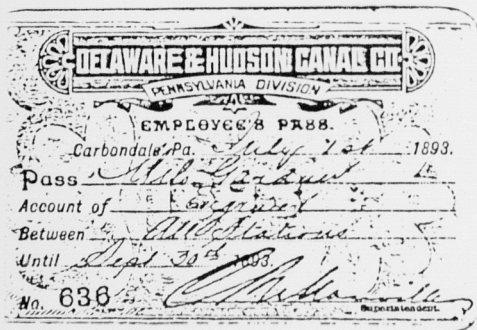 DELAWARE & HUDSON CANAL CO.
PENNSYLVANIA DIVISION
EMPLOYEE'S PASS.
Carbondale, Pa. July 1st 1893.
Pass Gardner
Account of
Between All Stations
Until Sept 30th 1893.
No. 636 Superintendent.